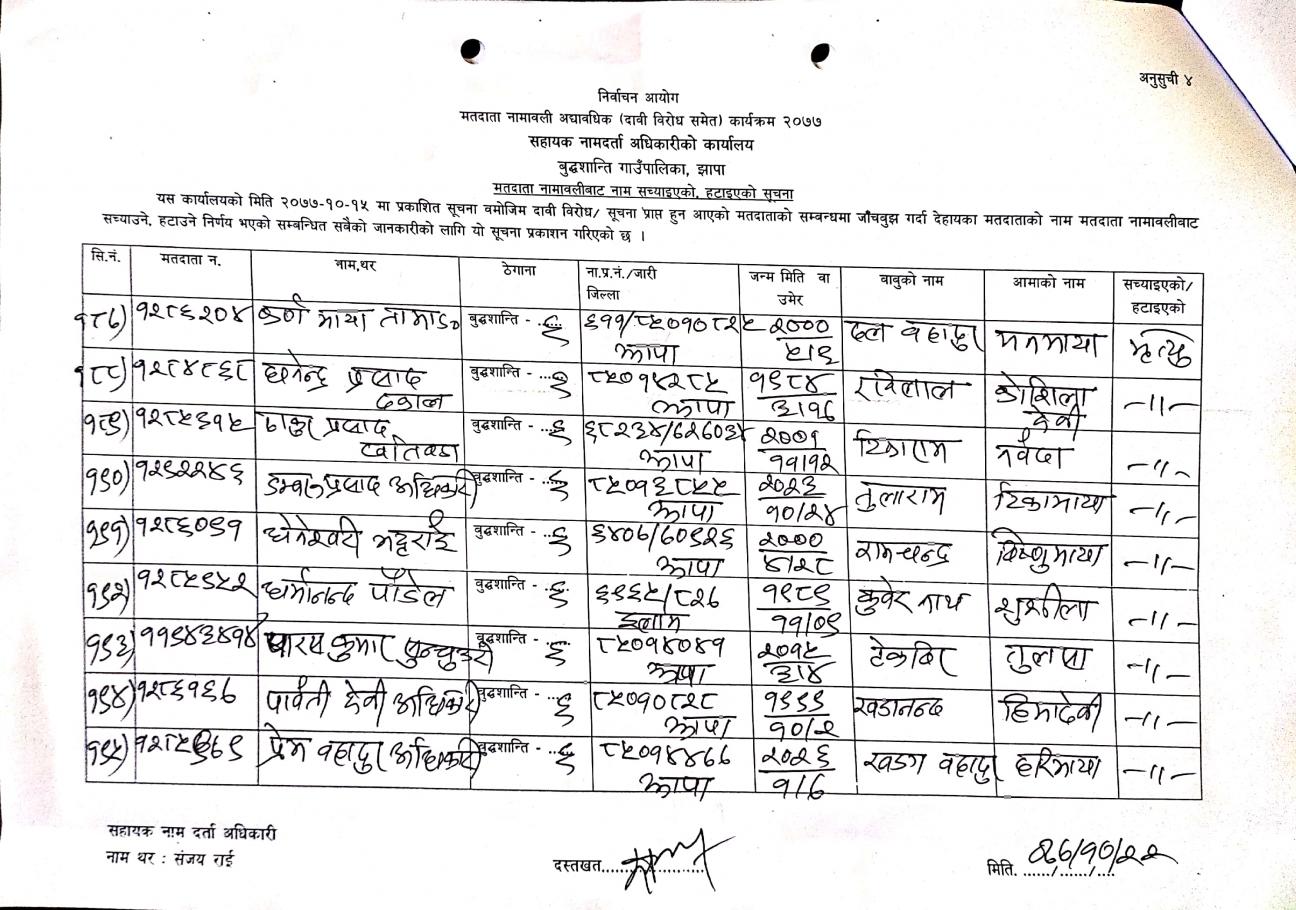 अनुसुची ४
निर्वाचन आयोग
मतदाता नामावली अद्यावधिक (दावी विरोध समेत) कार्यक्रम २०७७
सहायक नामदर्ता अधिकारीको कार्यालय
बुद्धशान्ति गाउँपालिका, झापा
मतदाता नामावलीबाट नाम सच्याइएको, हटाइएको सूचना
यस कार्यालयको मिति २०७७-१०-१५ मा प्रकाशित सूचना वमोजिम दावी विरोध/ सूचना प्राप्त हुन आएको मतदाताको सम्बन्धमा जाँचवुझ गर्दा देहायका मतदाताको नाम मतदाता नामावलीबाट
सच्याउने, हटाउने निर्णय भएको सम्बन्धित सबैको जानकारीको लागि यो सूचना प्रकाशन गरिएको छ ।
सि.नं. मतदाता न. नाम,थर ठेगाना ना.प्र.नं./जारी जिल्ला जन्म मिति वा उमेर बाबुको नाम आमाको नाम सच्याइएको/ हटाइएको
१८७) १२८६२०४ कर्ण माया तामाङ बुद्धशान्ति - ६ ६११/८५०१०८२५ झापा २००० ५/६ दल वहादुर मनमाया मृत्यु
१८८) १२८४८६८ छगेन्द्र प्रसाद दकाल बुद्धशान्ति - ...६ ८५०१४२८५ झापा १९८४ ३/१७ रविलाल कोशिला देवी -॥-
१८९) १२८५६१५ ठाकुर प्रसाद खतिवडा बुद्धशान्ति - ६ झापा २००१ ११/१२ टिकाराम नर्वदा -॥-
१९०) १२९२२४६ डम्बरु प्रसाद अधिकारी बुद्धशान्ति - ६ ८५०१६८५५ झापा २०२६ १०/२४ तुलाराम टिकामाया -॥-
१९१) १२८६०९१ भट्टराई बुद्धशान्ति - ६ ६४०७/६०९२६ झापा २००० ४/२८ रामचन्द्र विष्णुमाया -॥-
१९२) १२८५९५२ धर्मानन्द पौडेल बुद्धशान्ति - ६ ६९६५/८२७ इलाम १९८९ ११/०९ कुवेर नाथ शुशीला -॥-
१९३) ११९४३४१४ पारस कुमार सुन्चुउरी बुद्धशान्ति - ६ ८५०१४०४१ झापा २०१५ ३/४ टेकविर तुलसा -॥-
१९४) १२८६१६७ पार्वती देवी अधिकारी बुद्धशान्ति - ...६ ८५०१०८२८ झापा १९९९ १०/२ खडानन्द हिमादेवी -॥-
१९५) प्रेम वहादुर अधिकारी बुद्धशान्ति - ...६ ८५०१४४७७ झापा २०२६ १/७ खडग वहादुर हरिमाया -॥-
सहायक नाम दर्ता अधिकारी
नाम थर : संजय राई
दस्तखत....................
मिति. ७७/१०/२२